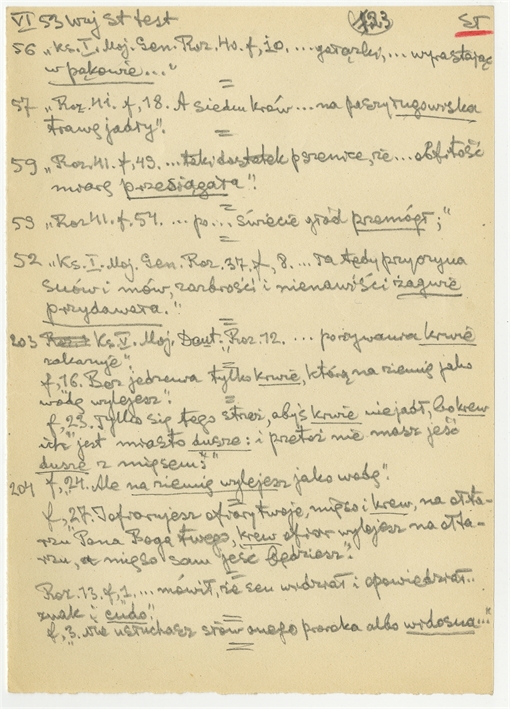 VI 53 wyj St test 123 ST
56 „Ks. I. Moj. Gen. Roz. 40. f, 10. ... gałązki, ... wyrastając
w pąkowie..."
57 „Roz. 41. f, 18. A siedm krów ... na paszy ługowiska
trawę jadły".
59 „Roz. 41. f, 49. ... taki dostatek pszenice, że ... obfitość
miarę przesiągała".
59 „Roz 41. f. 54. ... po... świecie głód przemógł;"
52 „Ks. I. Moj. Gen. Roz. 37. f, 8. ... Ta tedy przyczyna
snów i mów, zazdrości i nienawiści żagwie
przydawała."
203 Ks. V. Moj. Deut. Roz. 12. ... pożywania krwie
zakazuje".
f, 16. Bez jedzenia tylko krwie, którą na ziemię jako
wodę wylejesz".
f, 23. Tylko się tego strzeż, abyś krwie nie jadł, bo krew
ich jest miasto dusze: i przetoż nie masz jeść
dusze z mięsem:"
204 f, 24. Ale na ziemię wylejesz jako wodę".
f, 27. I ofiarujesz ofiary twoje, mięso i krew, na ołta-
rzu Pana Boga twego, krew ofiar wylejesz na ołta-
rzu, a mięso sam jeść będziesz".
Roz. 13. f, 1. ... mówił, że sen widział i opowiedział..
znak i cudo".
f, 3. Nie usłuchasz słów onego proroka albo widosna..."